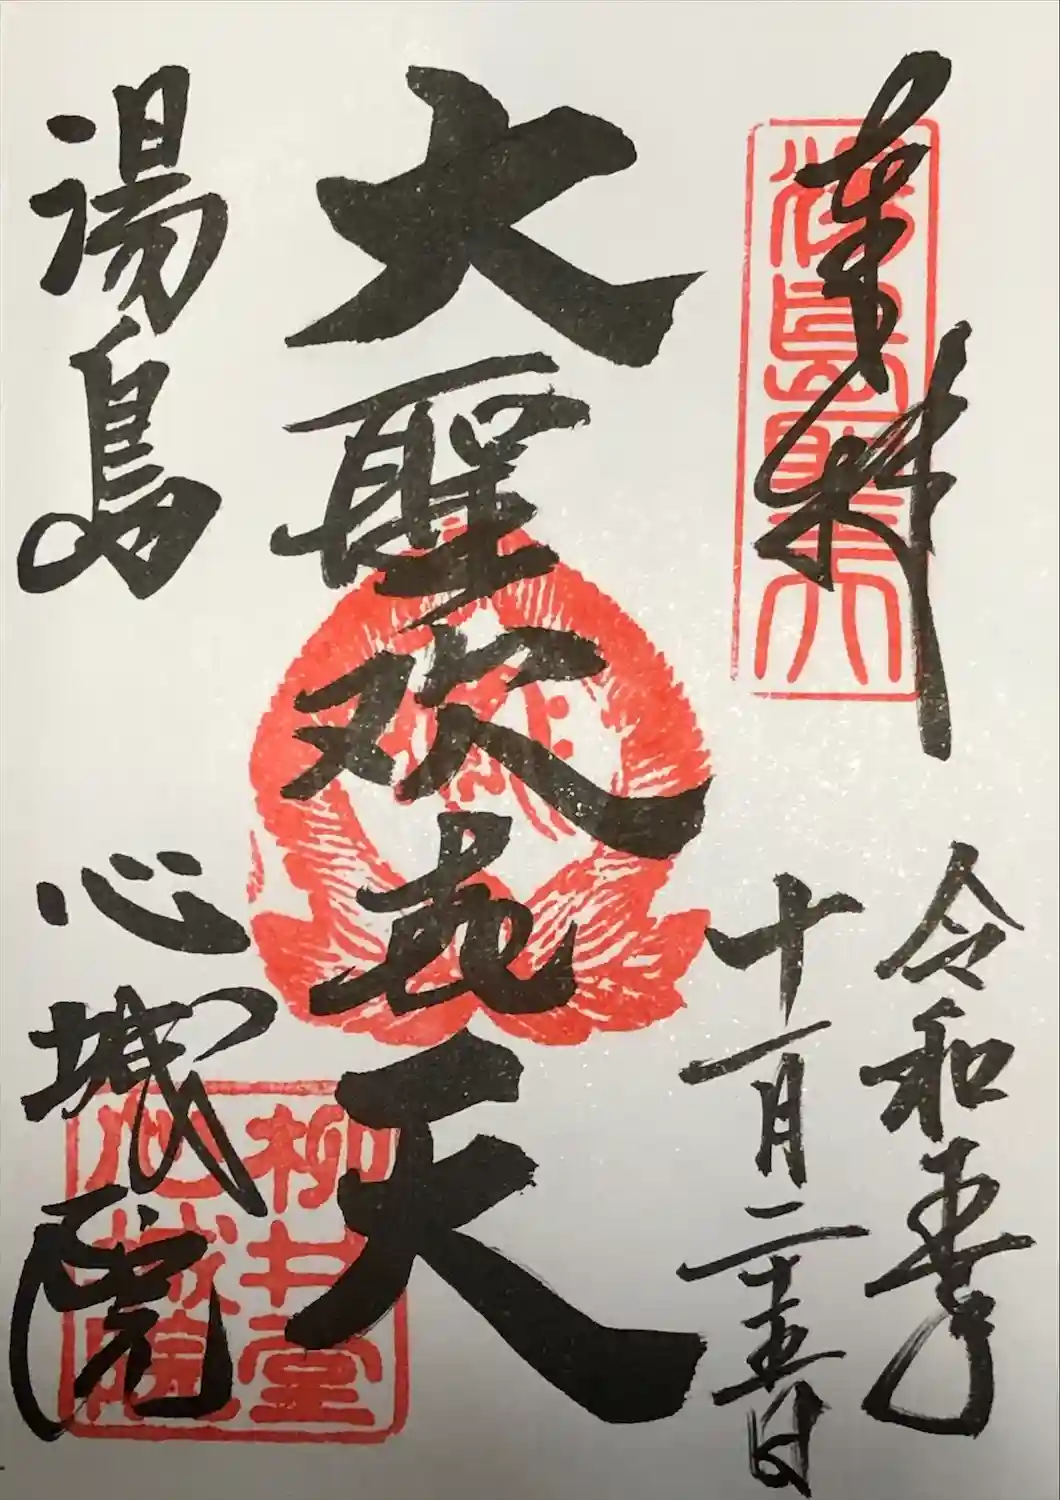 奉拝
湯島聖天
令和五年
十一月二十五日
大聖歓喜天
湯島
心城院
柳井堂
心城院